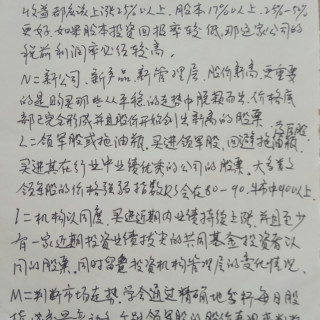 收益都应该上涨25%以上，股本17%以上，25%-50%
更好，如果股本投资回报率较低，那这家公司的
税前利润率必须较高。
N=新公司、新产品、新管理层、股价新高，更重要
的是购买那些从平稳的走势中脱颖而出，价格底
部已完全形成并且股价开始创出新高的股票。
L=领军股或拖油瓶，买进领军股，回避拖油瓶，
买进其在行业中业绩优秀的公司的股票，大多
领军股的价格强弱指数RS会在80-90，牛市中90以上。
I=机构认同度，买进近期内业绩持续上涨，并且至少
有一家近期投资业绩拔尖的共同基金投资者认
同的股票，同时留意投资机构管理层的变化情况。
M=判断市场走势，学会通过精确地分析每日股